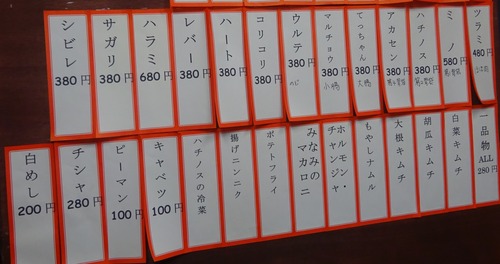 ツラミ 480円
ミノ 580円
ハチノス 380円
アカセン 380円
てっちゃん 380円 大腸
マルチョウ 380円 小腸
ウルテ 380円 のど
コリコリ 380円
ハート 380円
レバー 380円
ハラミ 680円
サガリ 380円
シビレ 380円
一品物 ALL 280円
白菜キムチ
胡瓜キムチ
大根キムチ
もやしナムル
ホルモン・チャンジャ
みなみのマカロニ
ポテトフライ
揚げニンニク
ハチノスの冷菜
キャベツ 100円
ピーマン 100円
チシャ 280円
白めし 200円